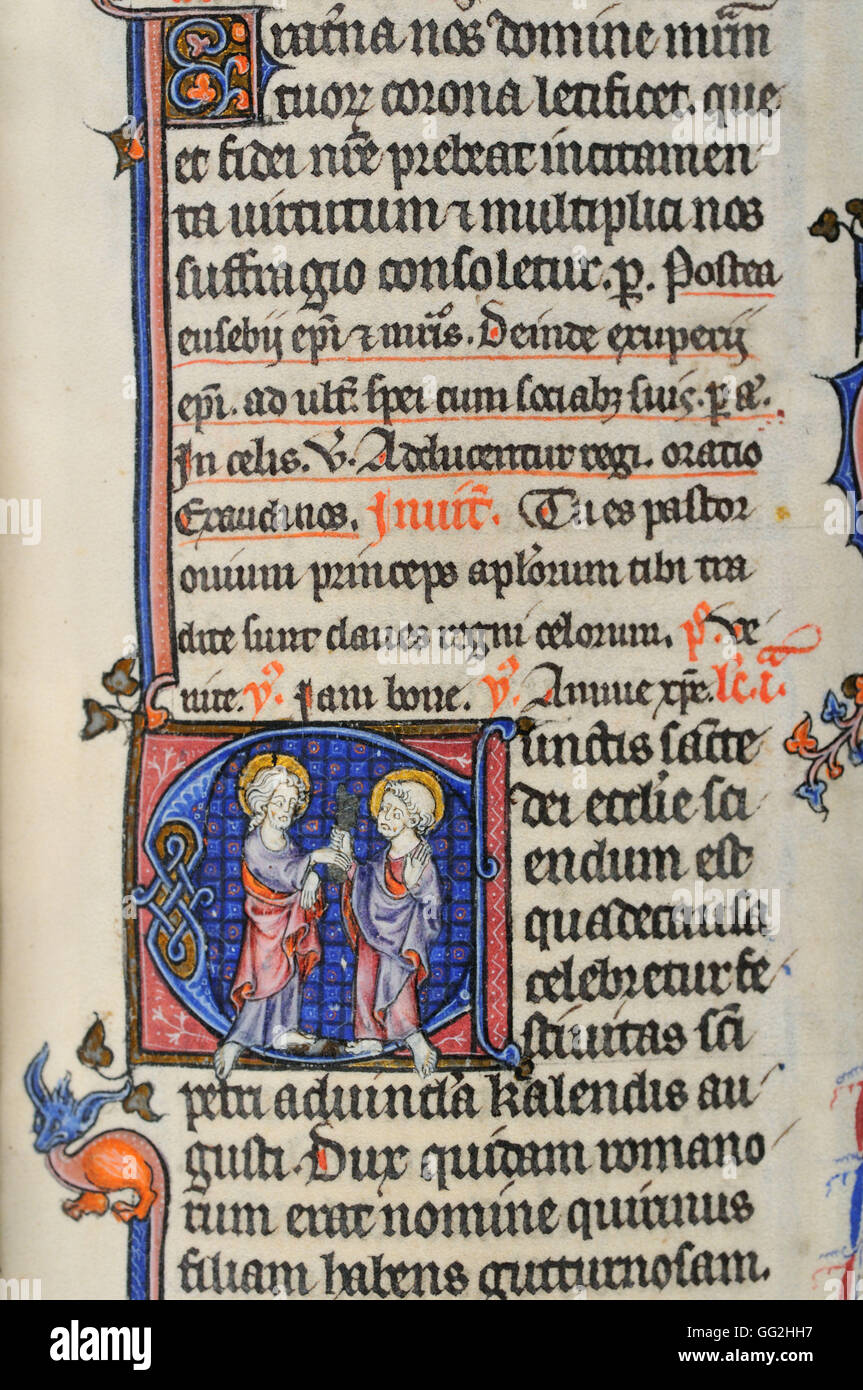 Fraterna nos domine mr̃m
tuoꝝ corona letificet. que
et fidei nr̃e prebeat incitamen
ta uirtutum ⁊ multiplici nos
suffragio consoletur. ꝑ. Postea
eusebij ep̃i ⁊ mr̃is. Deinde exuperij
ep̃i. ad ult̃. spei cum sociabꝫ suis. ꝑ a͛.
In celis. V̓. Adducentur regi. oratio
Exaudi nos. Inuit̃. Tu es pastor
ouium princeps apl̃orum tibi tra
dite sunt claues regni celorum. p̃s. Ve
nite. y̓. Iam bone. y̓. Annue xp̃e. lc̃. ĩ.
Cunctis sancte
dei eccl̃ie sci
endum est
qua de causa
celebretur fe
stiuitas sc̃i
petri ad uincl̃a kalendis au
gusti. Dux quidam romano
rum erat nomine quirinus
filiam habens gutturnosam.
alamy
Image ID: GG2HH7
www.alamy.com